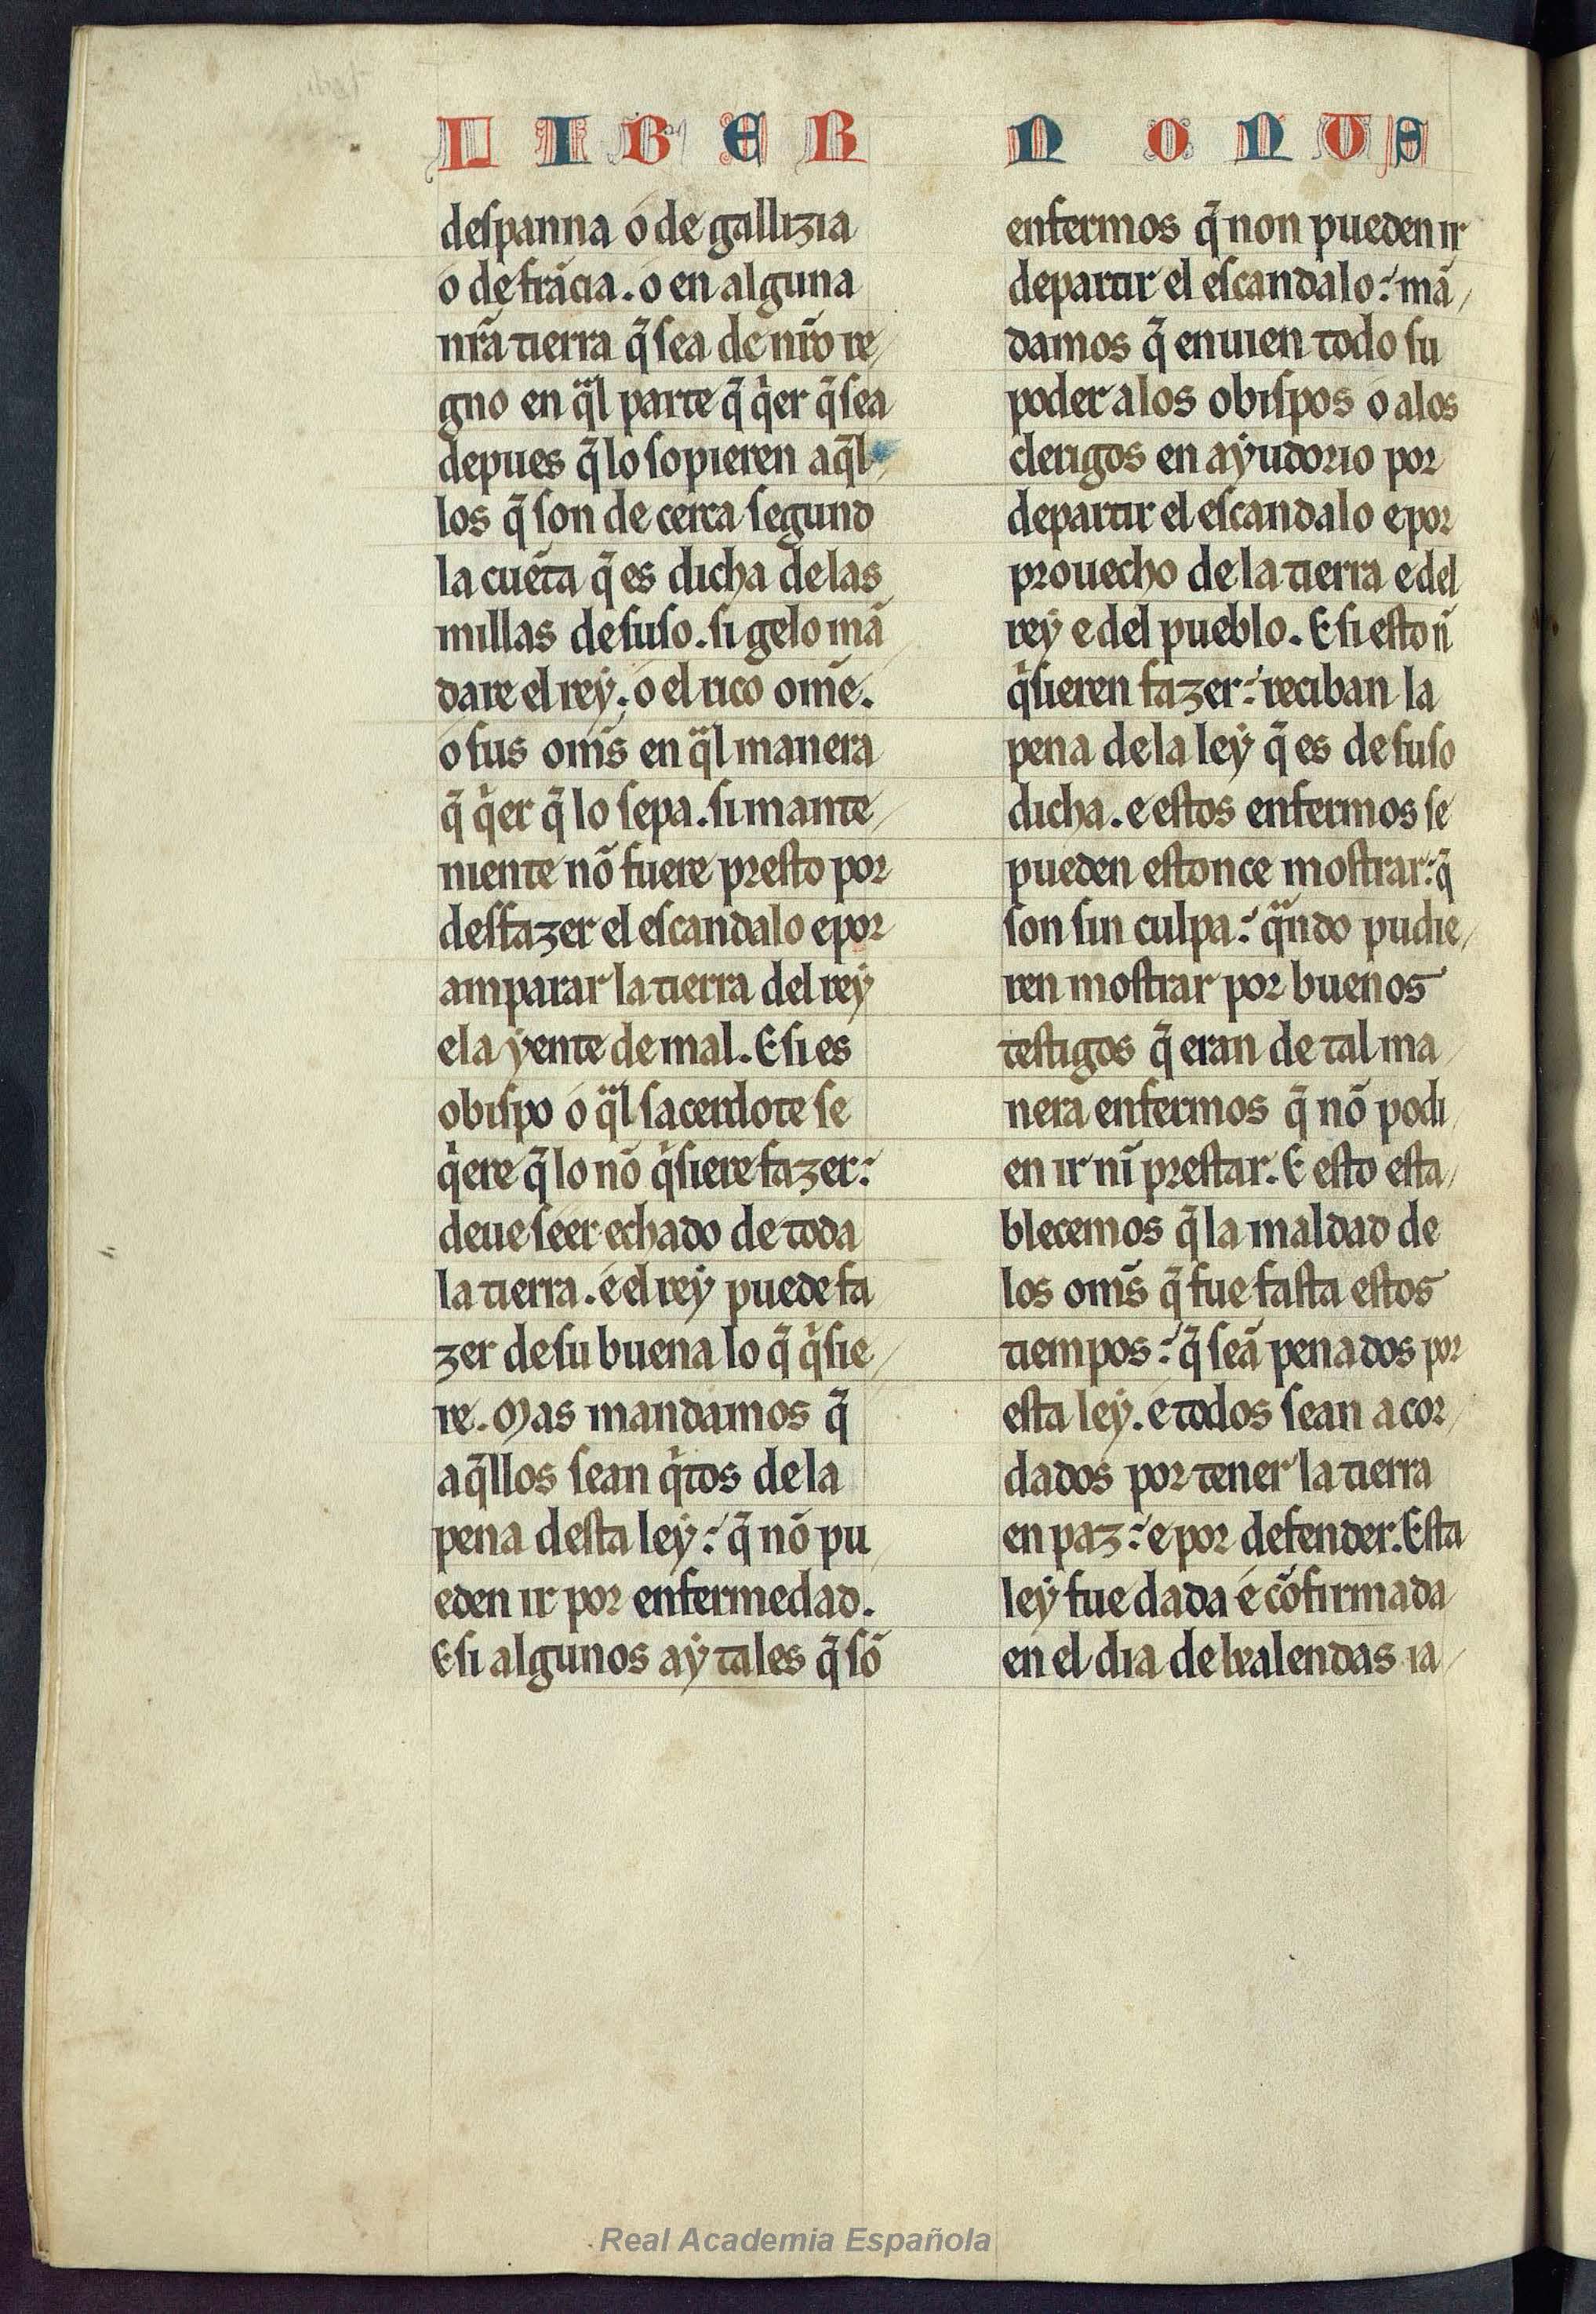 LIBER NONUS
deſpanna o de gallizia
o de frãcia. o en alguna
nr̃a tierra q̃ ſea de nr̃o re/
gno en qͣl parte q̃ qͥer q̃ ſea
depues q̃ lo ſopieren aq̃l/
los q̃ ſon de cerca ſegund
la cuẽta q̃ es dicha delas
millas de ſuſo. ſi gelo mã
dare el rey. o el rico om̃e.
o ſus om̃s en qͣl manera
q̃ qͥer q̃ lo ſepa. ſi mante/
niente nõ fuere preſto por
desfazer el eſcandalo e por
amparar la tierra del rey
e la yente de mal. E ſi es
obiſpo o qͣl ſacerdote ſe
qͥere q̃ lo nõ qͥſiere fazer:
deue ſeer echado de toda
la tierra. e el rey puede fa
zer de ſu buena lo q̃ qͥſie/
re. Mas mandamos q̃
aq̃llos ſean qͥtos de la
pena deſta ley: q̃ nõ pu
eden ir por enfermedad.
E ſi algunos ay tales q̃ ſõ
enfermos q̃ non pueden ir
departir el eſcandalo: mã/
damos q̃ enuien todo ſu
poder alos obiſpos o alos
clerigos en ayudorio por
departir el eſcandalo e por
prouecho de la tierra e del
rey e del pueblo. E ſi eſto ñ
qͥſieren fazer: reciban la
pena de la ley q̃ es de ſuſo
dicha. e eſtos enfermos ſe
pueden eſtonce moſtrar: q̃
ſon ſin culpa: qͣndo pudie/
ren moſtrar por buenos
teſtigos q̃ eran de tal ma/
nera enfermos q̃ nõ podi/
en ir nĩ preſtar. E eſto eſta/
blecemos q̃ la maldad de
los om̃s q̃ fue faſta eſtos
tiempos: q̃ ſeã penados por
eſta ley. e todos ſean acor/
dados por tener la tierra
en paz: e por defender. Eſta
ley fue dada e cõfirmada
en el dia de kalendas ia/
Real Academia Española